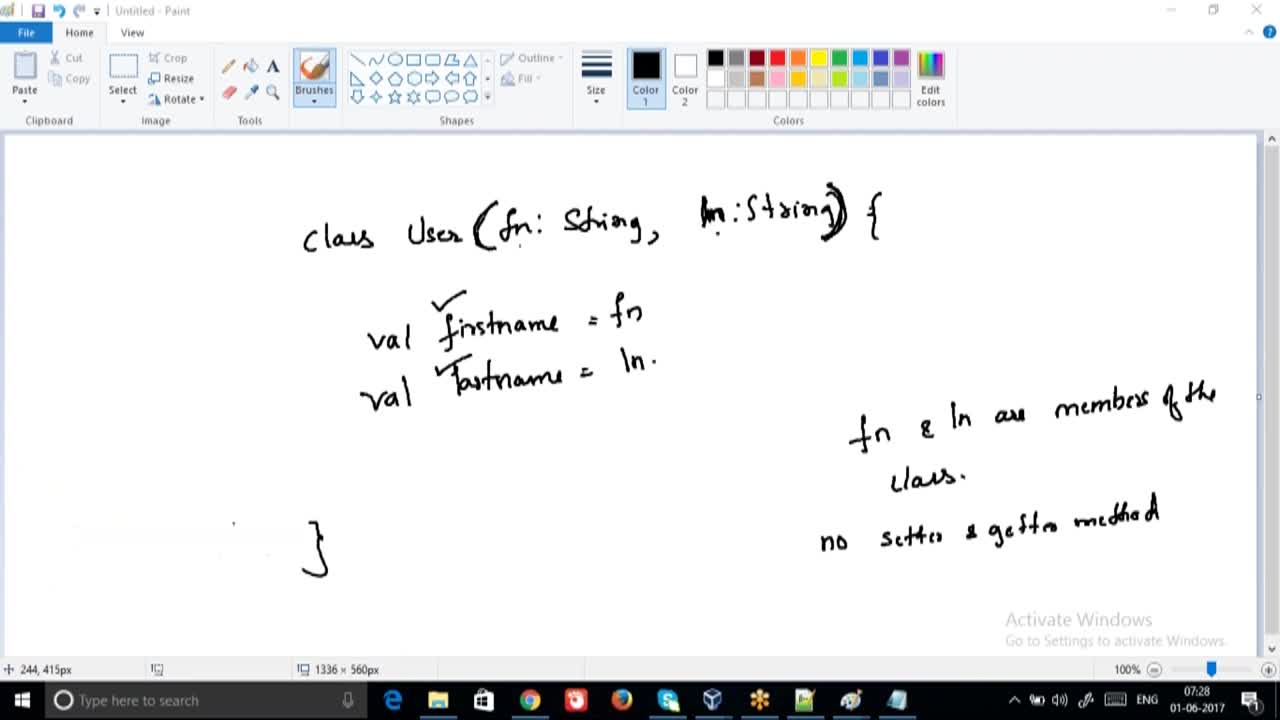 Untitled - Paint
File Home View
Paste
Cut
Copy
Clipboard
Select
Crop
Resize
Rotate
Image
Tools
Brushes
Shapes
Outline
Fill
Size
Color 1
Color 2
Colors
Edit colors
class User (fn: String, ln: String) {
val firstname = fn
val lastname = ln.
fn & ln are members of the
class.
no setter & getter method
}
Activate Windows
Go to Settings to activate Windows.
244, 415px
1336 × 560px
100%
Type here to search
ENG
07:28
01-06-2017